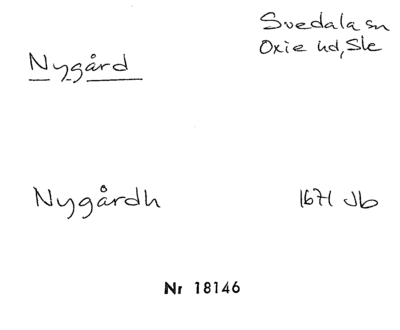 Svedala sn
Oxie hd, Ske
Nygård
Nygårdh 1671 Jb
Nr 18146